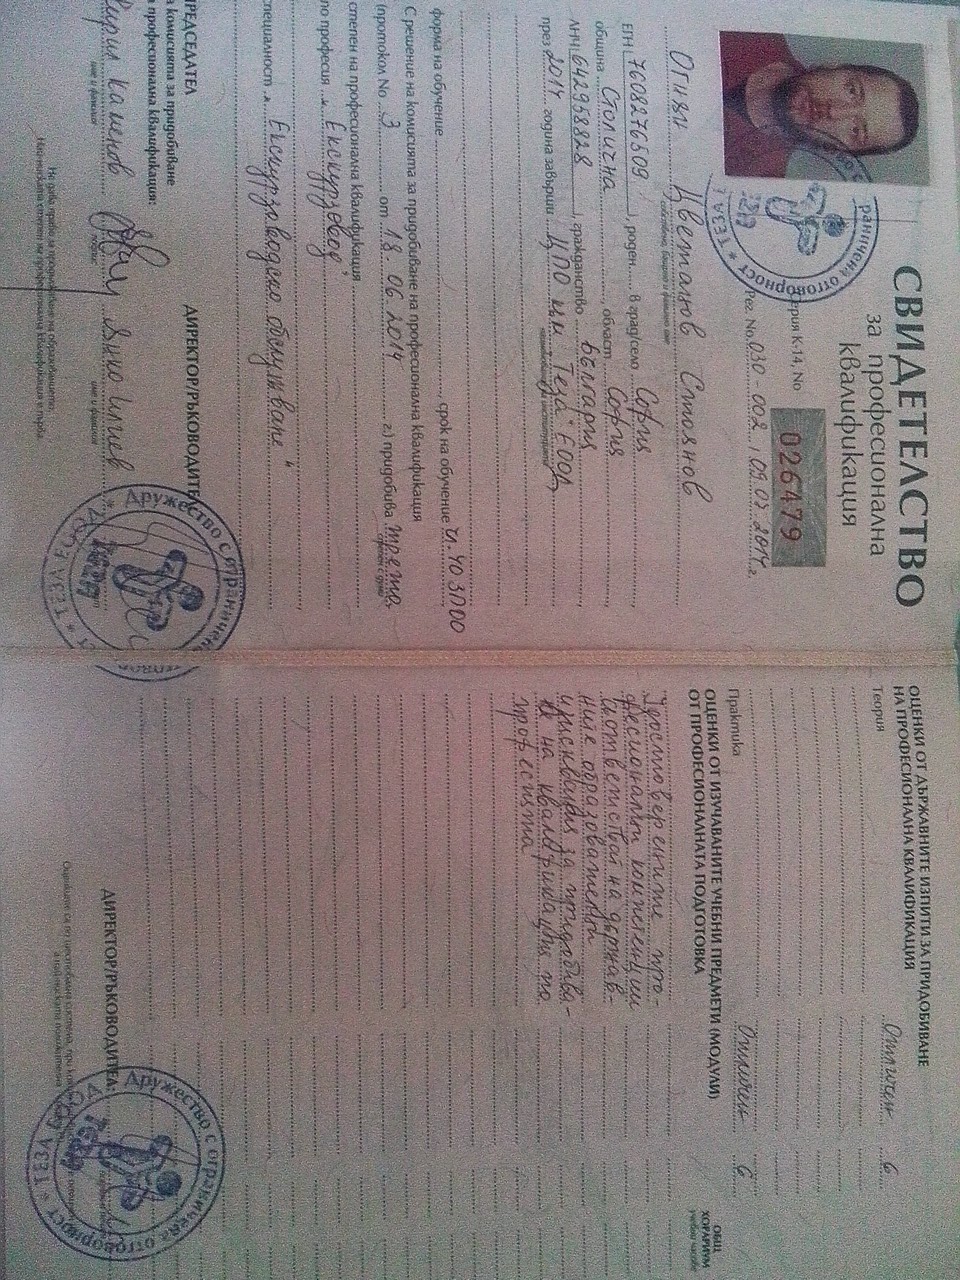 СВИДЕТЕЛСТВО
за професионална
квалификация
Серия К-14, No 026479
Рег. No 030-002, 09.07.2014 г.
Огнян Цветанов Стоянов
ЕГН 7608276509, роден в град/село София
община Столична, област София
ЛНЧ 642958828, гражданство България
през 2014 година завърши ЦПО към "Теза" ЕООД
форма на обучение, срок на обучение чл. 40 ЗПОО
С решение на комисията за придобиване на професионална квалификация
(протокол No 3 от 18.06.2014 г.) придобива трета
степен на професионална квалификация
по професия "Екскурзовод"
специалност "Екскурзоводско обслужване"
ПРЕДСЕДАТЕЛ
на комисията за придобиване
на професионална квалификация:
Кирил Каменов
име и фамилия
ДИРЕКТОР/РЪКОВОДИТЕЛ
Янко Илиев
име и фамилия
Не дава право за продължаване на образованието.
Дружество с ограничена отговорност * ТЕЗА ЕООД *
ОЦЕНКИ ОТ ДЪРЖАВНИТЕ ИЗПИТИ ЗА ПРИДОБИВАНЕ
НА ПРОФЕСИОНАЛНА КВАЛИФИКАЦИЯ
Теория Отличен 6
Практика Отличен 6
ОЦЕНКИ ОТ ИЗУЧАВАНИТЕ УЧЕБНИ ПРЕДМЕТИ (МОДУЛИ)
ОТ ПРОФЕСИОНАЛНАТА ПОДГОТОВКА
ОБЩ
ХОРАРИУМ
учебни часове
"Удостоверените про-
фесионални компетенции
съответстват на държав-
ните образователни
изисквания за придобива-
не на квалификация по
професията"
ДИРЕКТОР/РЪКОВОДИТЕЛ:
Дружество с ограничена отговорност * ТЕЗА ЕООД *